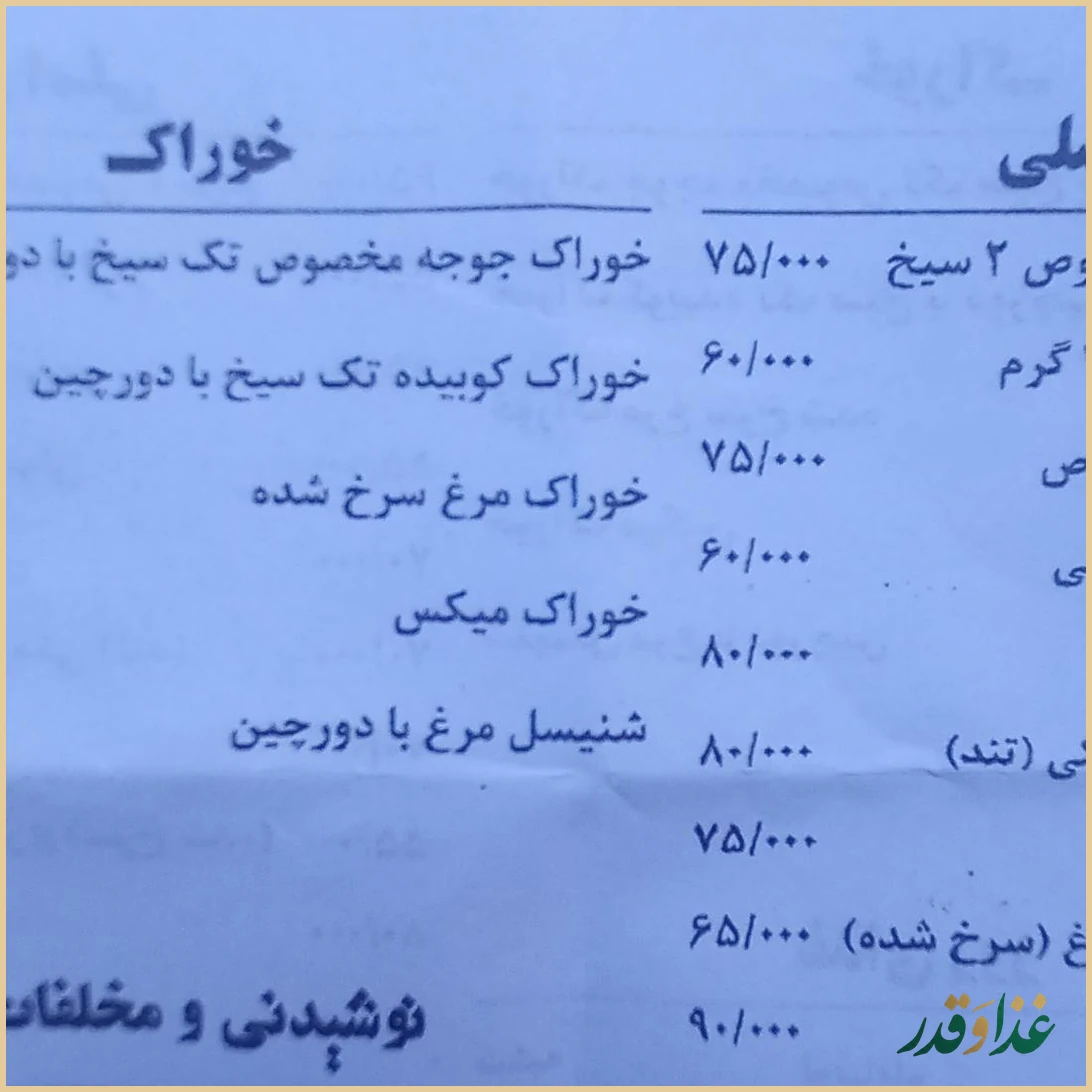 ملی
وص ۲ سیخ ۷۵/۰۰۰
گرم ۶۰/۰۰۰
ص ۷۵/۰۰۰
ی ۶۰/۰۰۰
۸۰/۰۰۰
نی (تند) ۸۰/۰۰۰
۷۵/۰۰۰
غ (سرخ شده) ۶۵/۰۰۰
۹۰/۰۰۰
خوراک
خوراک جوجه مخصوص تک سیخ با دو
خوراک کوبیده تک سیخ با دورچین
خوراک مرغ سرخ شده
خوراک میکس
شنیسل مرغ با دورچین
نوشیدنی و مخلفات
غذا و قدر